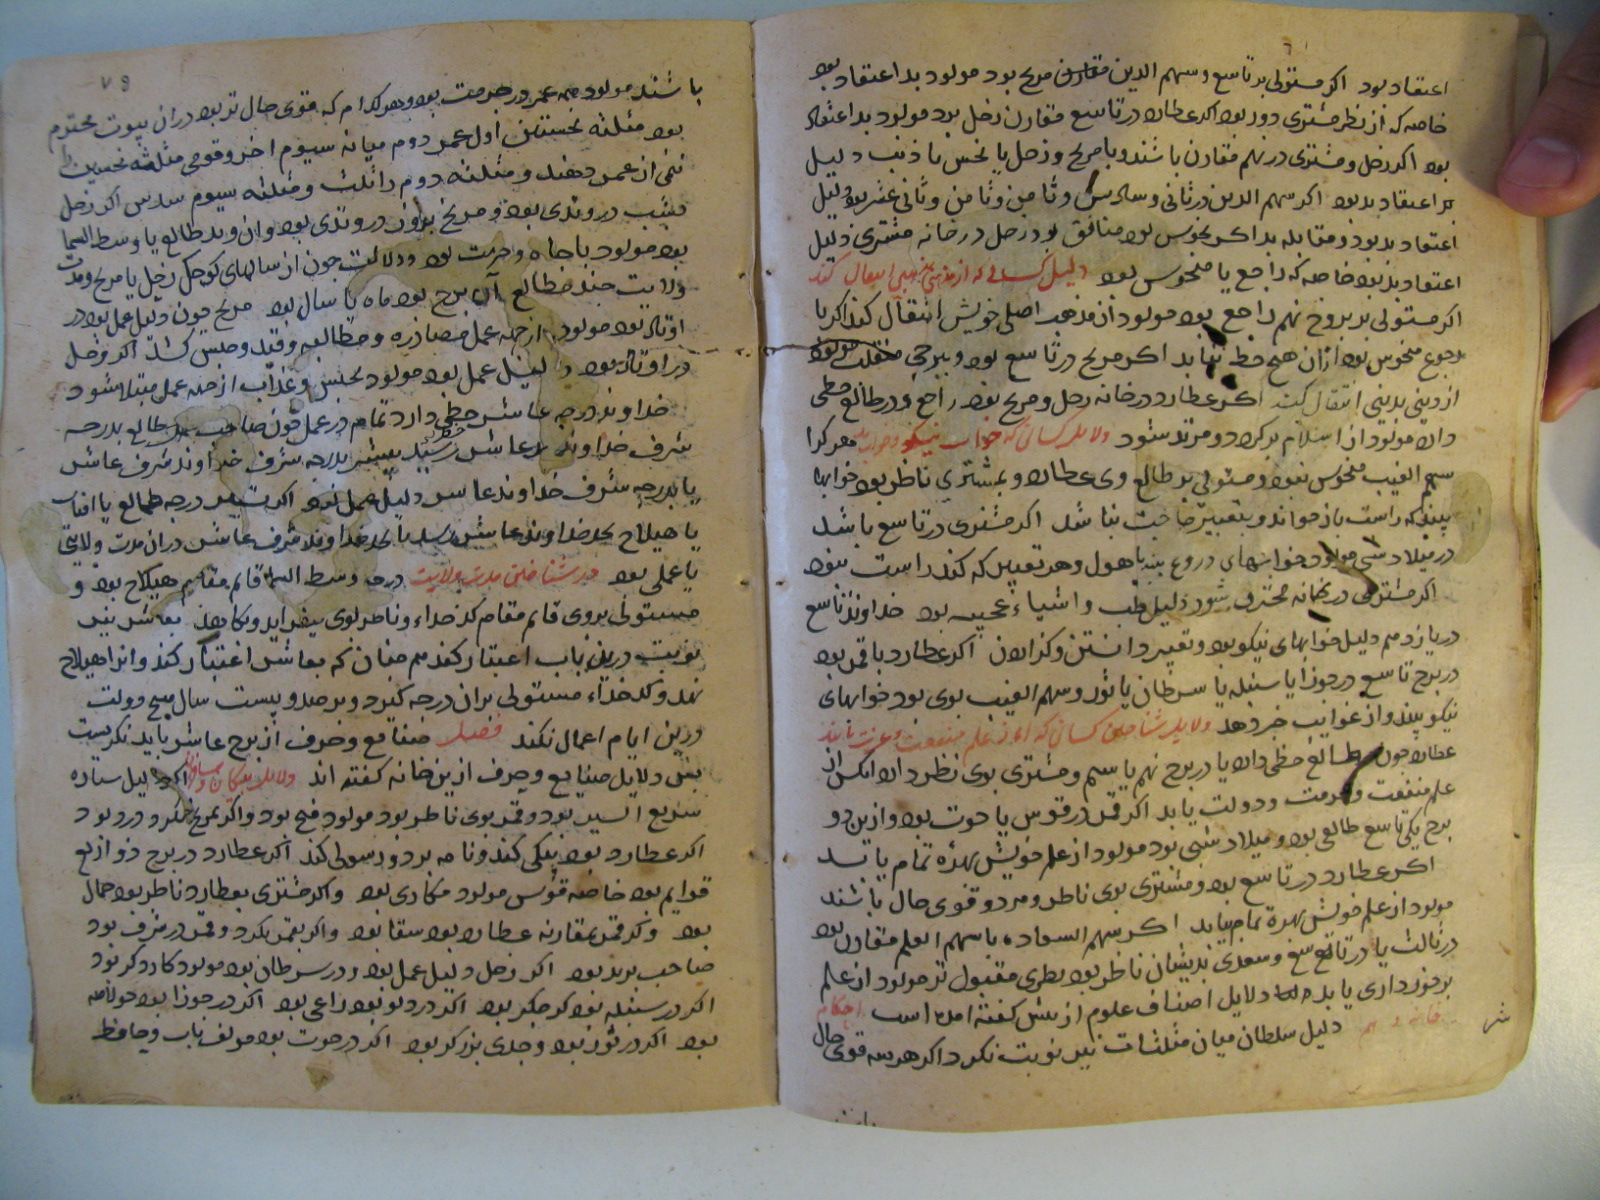 اعتقاد بود اکر مستولی بر تاسع و سهم الدین مقارن مریخ بود مولود بد اعتقاد بود
خاصه که از نظر مشتری دور بود اکر عطارد در تاسع مقارن زحل بود مولود بد اعتقاد
بود اکر زحل و مشتری در نهم مقارن باشند و یا مریخ و زحل یا نحس با ذنب دلیل
بر اعتقاد بد بود اکر سهم الدین در ثانی و سادس و ثامن و ثانی عشر بود دلیل
اعتقاد بد بود و مقابله بد اکر نحوس بود منافق بود زحل در خانه مشتری دلیل
اعتقاد بد بود خاصه که راجع یا منحوس بود دلیل کسانی که از مذهبی بمذهبی انتقال کند
اکر مستولی بر برج نهم راجع بود مولود از مذهب اصلی خویش انتقال کند اکر با
رجوع منحوس بود ازان هیچ حظ نیابد اکر مریخ در تاسع بود و ببرجی منقلب مولود
از دینی بدینی انتقال کند اکر عطارد در خانه زحل و مریخ بود راجع و در طالع حظی
دارد مولود از اسلام برکردد و مرتد شود دلایل کسانی که خواب نیکو و خواب بد هر کرا
سهم الغیب منحوس نبود و مستولی بر طالع وی عطارد و بمشتری ناظر بود خوابها
بیند که راست باز خواند و بتعبیر حاجت نباشد اکر مشتری در تاسع باشد
در میلاد شبی مولود خوابهای دروغ بیند با هول و هر تعبیر که کند راست نبود
اکر مشتری در نحانه محترق شود دلیل طب و اشیاء عجیبه بود خداوند تاسع
در یازدهم دلیل خوابهای نیکو بود و تعبیر دانستن و کزاردن اکر عطارد با قمر بود
در برج تاسع در جوزا یا سنبله یا سرطان یا ثور و سهم الغیب بوی بود خوابهای
نیکو بیند و از غرایب خبر دهد دلایل شناختن کسانی که از علم منفعت و عزت یابند
عطارد چون بطالع حظی دارد یا در برج نهم یا سیم و مشتری بوی نظر دارد انکس از
علم منفعت و حرمت و دولت یابد اکر قمر در قوس یا حوت بود و ازین دو
برج یکی تاسع طالع بود و میلاد شبی بود مولود از علم خویش بهره تمام یابد
اکر عطارد در تاسع بود و مشتری بوی ناظر و هر دو قوی حال باشند
مولود از علم خویش بهره تمام یابد اکر سهم السعاده با سهم العلم مقارن بود
در ثالث یا در تاسع و سعدی بدیشان ناظر بود بطری مقبول تر مولود از علم
برخورداری یابد دلایل اصناف علوم از پیش کفته امده است احکام
خانه دهم دلیل سلطان میان مثلثات نیر نوبت نکرد اکر هر سه قوی حال
شر
باشند
۷۹
باشند مولود همه عمر در حرمت بود و هر کدام که قوی حال تر بود دران بیوت محترم
بود مثلثه نخستین اول عمر دوم میانه سیوم اخر و قومی مثلثه نخستین را
نیمی از عمر دهند و مثلثه دوم را ثلث و مثلثه سیوم سدس اکر زحل
بشب در وتدی بود و مریخ بروز در وتدی بود وان وتد طالع یا وسط السما
بود مولود با جاه و حرمت بود و دلالت چون از سالهای کوچک زحل یا مریخ و مدت
ولایت چند مطالع آن برج بود ماه یا سال بود مریخ چون دلیل عمل بود در
اوتاد بود مولود از جمله عمل مصادره و مطالبه و قید و حبس کشد اکر زحل
در اوتاد بود دلیل عمل بود مولود بحبس و عذاب از جمله عمل مبتلا شود
خداوند درجه عاشر حظی دارد تمام در عمل چون صاحب طالع بدرجه
شرف خداوند عاشر رسید بیشتر بدرجه شرف خداوند شرف عاشر
یا بدرجه شرف خداوند عاشر دلیل عمل بود اکر تسییر درجه طالع یا افتاب
یا هیلاج بحد خداوند عاشر رسد یا بحد خداوند شرف عاشر دران مدت ولایتی
یا عملی بود در شناختن مدت ولایت درجه وسط السما قائم مقام هیلاج بود و
مستولی بروی قائم مقام کدخداء و ناظر بوی بیفزاید و بکاهد بعاشر نیر
نوبت درین باب اعتبار کند هم چنان که بعاشر اعتبار کند وانرا هیلاج
نهد و کدخداء مستولی بران درجه کیرد و بر صد و بیست سال هیچ دولت
ورین ایام اعمال نکند فصل صنایع و حرف از برج عاشر باید نکریست
بس دلایل صنایع و حرف ازین خانه کفته اند دلایل بیکان و رسولان اکر دلیل ستاره
سریع السیر بود و قمر بوی ناظر بود مولود فیج بود و اکر بمریخ نکرد و درو بود
اکر عطارد بود بیکی کند و نامه برد و رسولی کند اکر عطارد در برج ذو اربع
قوایم بود خاصه قوس مولود مکاری بود و اکر مشتری بعطارد ناظر بود حمال
بود و کر قمر بمقارنه عطارد بود سقا بود و اکر بقمر نکرد و قمر در شرف بود
صاحب برید بود اکر زحل دلیل عمل بود و در سرطان بود مولود کاردکر بود
اکر در سنبله بود کرجکر بود اکر در دلو بود راعی بود اکر در جوزا بود جولاهه
بود اکر در ثور بود و جدی بزرکر بود اکر در حوت بود مولف باب و حافظ